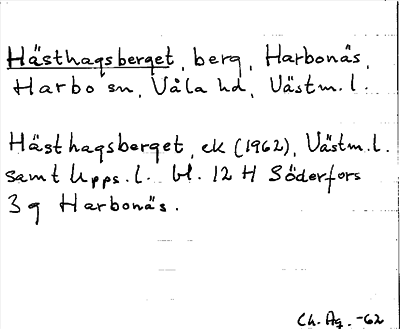 Hästhagsberget, berg, Harbonäs,
Harbo sn, Våla hd, Västm.l.
Hästhagsberget, ek (1962), Västm.l.
samt Upps.l. bl. 12 H Söderfors
3 g Harbonäs.
Ch. Ag. -62